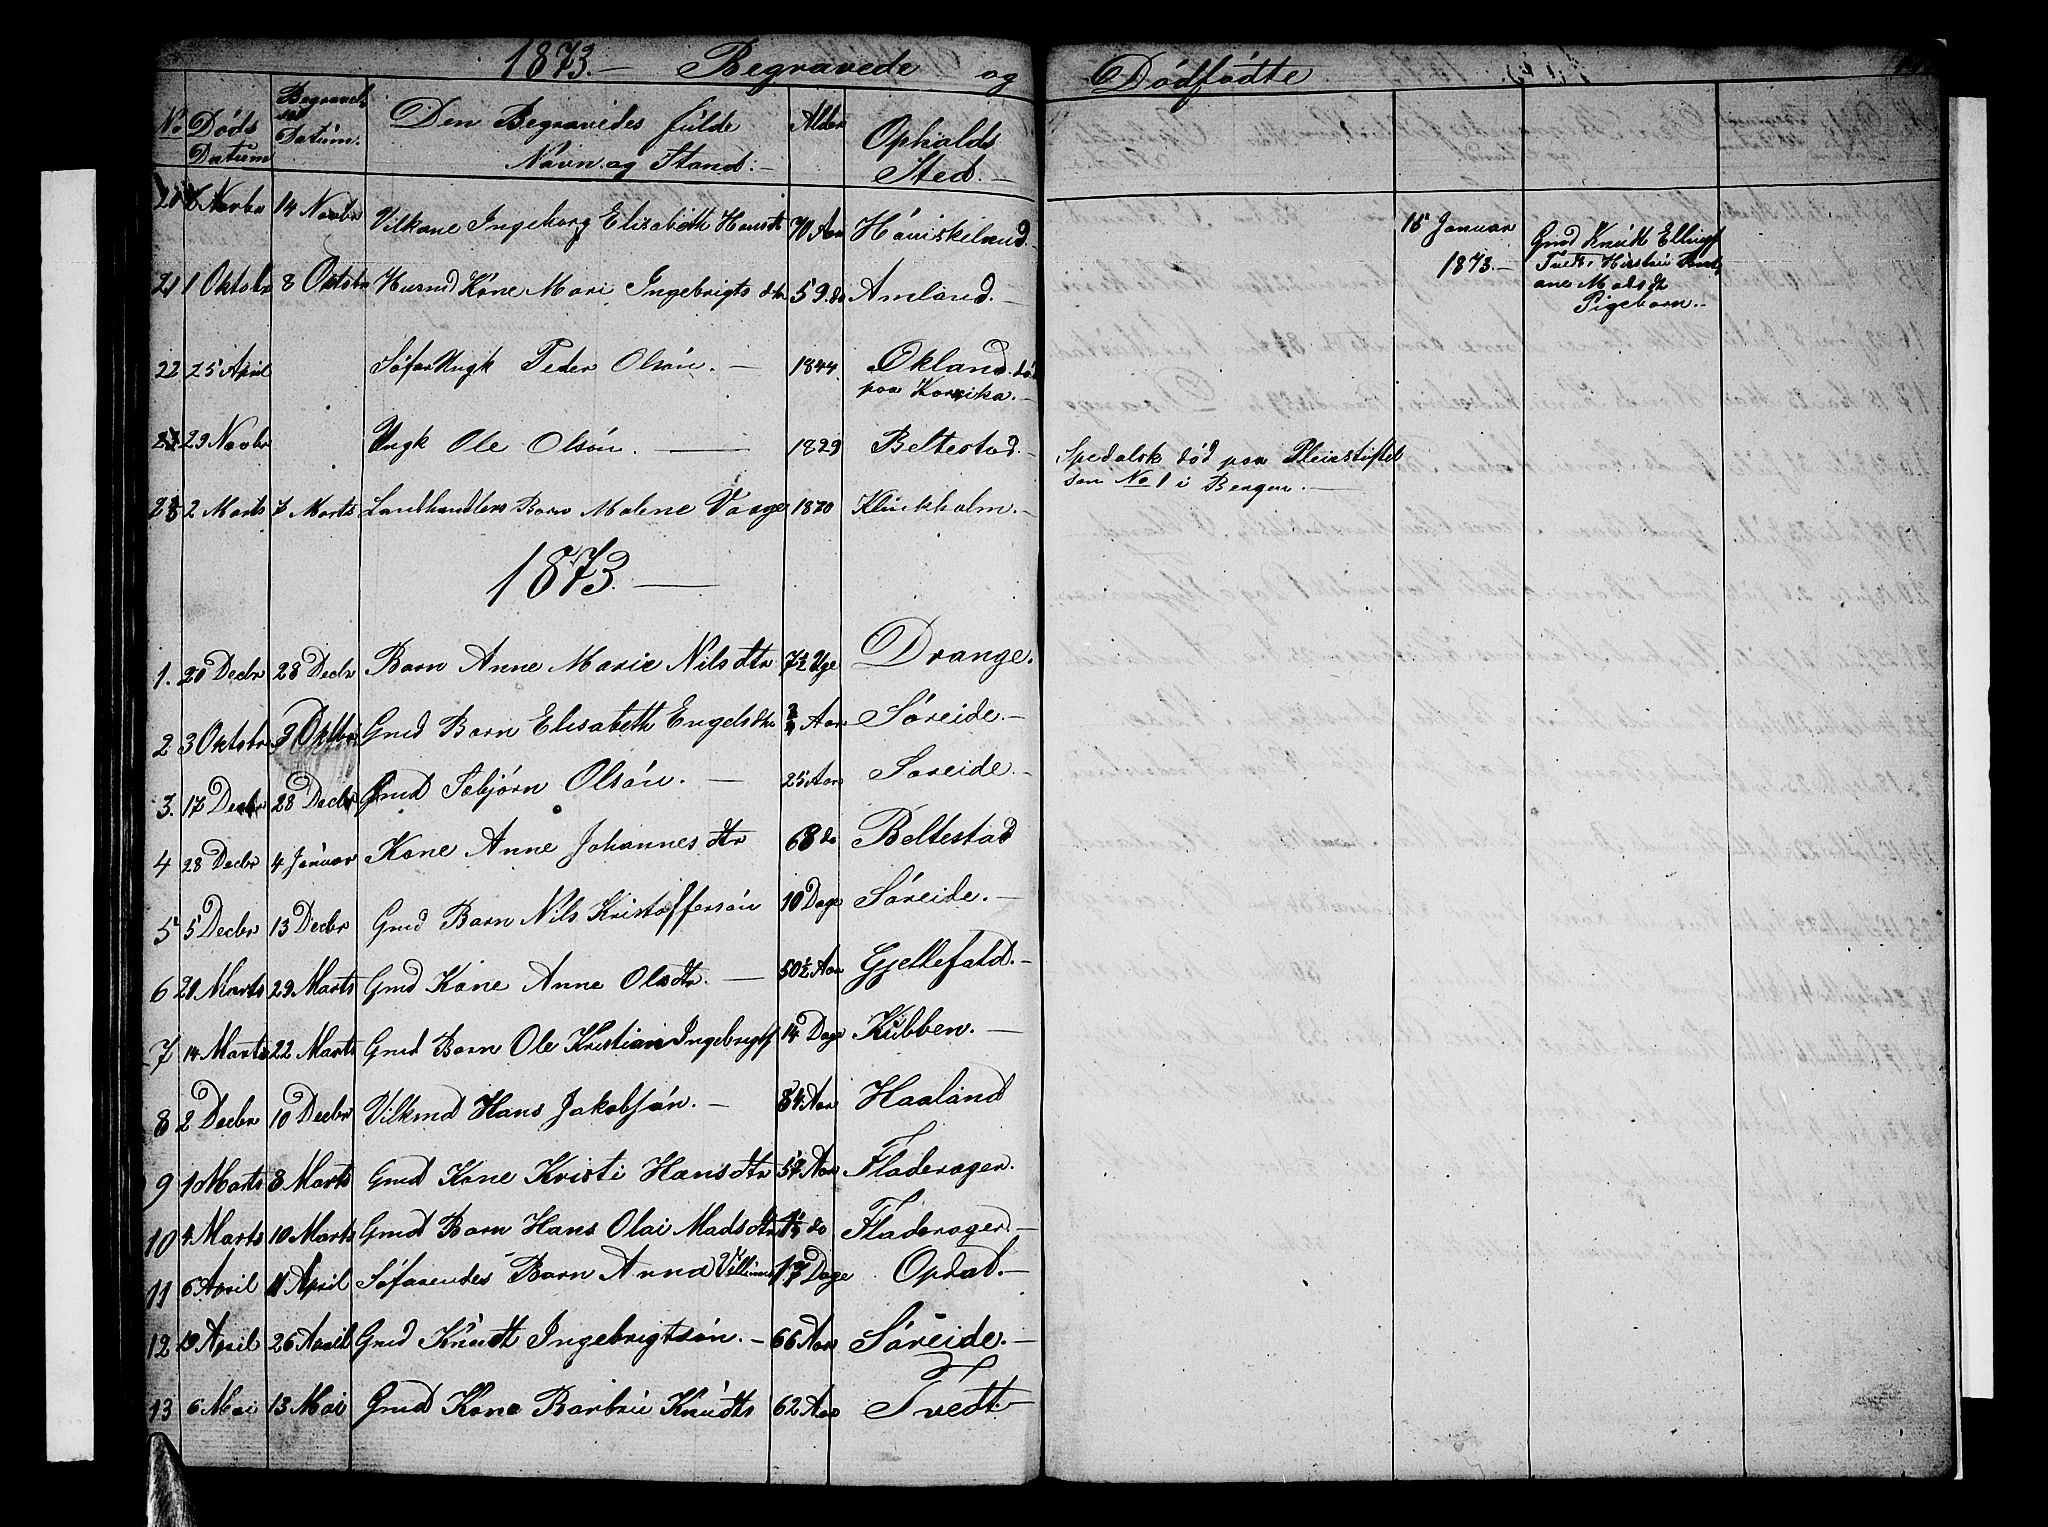 1873.— Begravede og Dødfødte
No Døds Datum Begravel ses Datum. Den Begravedes fulde Navn og Stand.— Alder Opholds Sted.—
14 Novbr Vilkone Ingeborg Elisabeth Hansdt 70 Aar
21 1 Oktobr 8 Oktobr Husmd Kone Mari Ingebrigtsdtr 59 do Amland.—
22 25 April Søfar Ungk Peder Olsøn.— 1844 Økland død
paa Korsika.—
23 29 Novbr Ungk Ole Olsøn.— 1829 Beltestad.—
2 Marts 7 Marts Landhandlers Barn Malene Vaage 1870 Klunkholm.—
1873.—
1. 20 Decbr 28 Decbr Barn Anne Marie Nilsdtr 7½ Uge Drange.
2 3 Oktobr Gmd Barn Elisabeth Engelsdtr Aar Søreide.—
3. 17 Decbr 28 Decbr Gmd Olsøn.— 25 Aar Søreide.—
4 28 Decbr 4 Januar Kone Anne Johannesdtr 68 do Beltestad
5 5 Decbr 13 Decbr Gmd Barn Nils Kristoffersøn 10 Dage Søreide.—
6 21 Marts 29 Marts Gmd Kone Anne Olsdtr.— 50½ Aar Gjellefald.—
7 14 Marts 22 Marts Gmd Barn Ole Kristian Ingebrigts 14 Dage Kubben.—
8 2 Decbr 10 Decbr Vilkmd Hans Jakobsøn.— 84 Aar Haaland
9 1 Marts 8 Marts Gmd Kone Kristi Hansdtr Aar Fladerager.
10 4 Marts 10 Marts Gmd Barn Hans Olai Madsdtr do Fladerager.—
11 6 April 11 April Søfarendes Barn Anna Dage Opdal.—
12 19 April 26 April Gmd Knudt Ingebrigtsøn.— 66 Aar Søreide.—
13 6 Mai 13 Mai Gmd Kone Barbru Knudts 62 Aar Tvedt—
15 Januar
1873.—
Gmd Knudt Ellings
Tvedt Hustru
ane Madsdt
Pigebarn.—
Spedalsk død paa Pleiestiftel
sen No 1 i Bergen.—